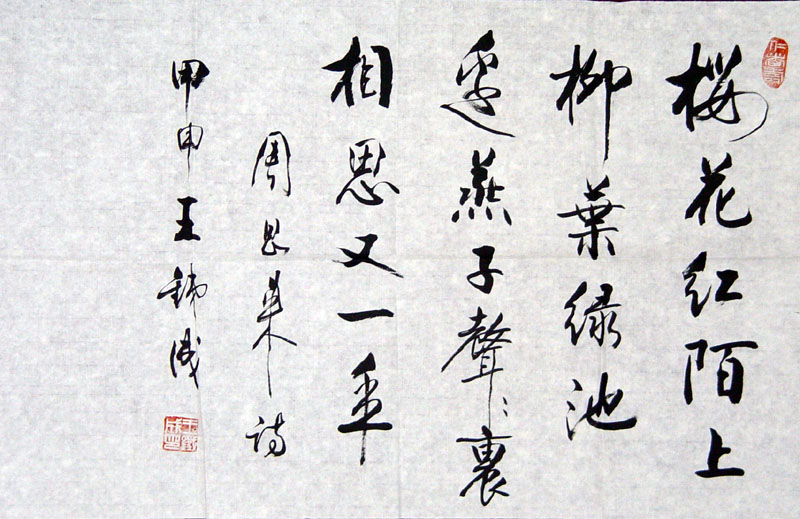 樱花红陌上
柳葉绿池
边燕子聲々裏
相思又一年
周恩来诗
甲申王銕成